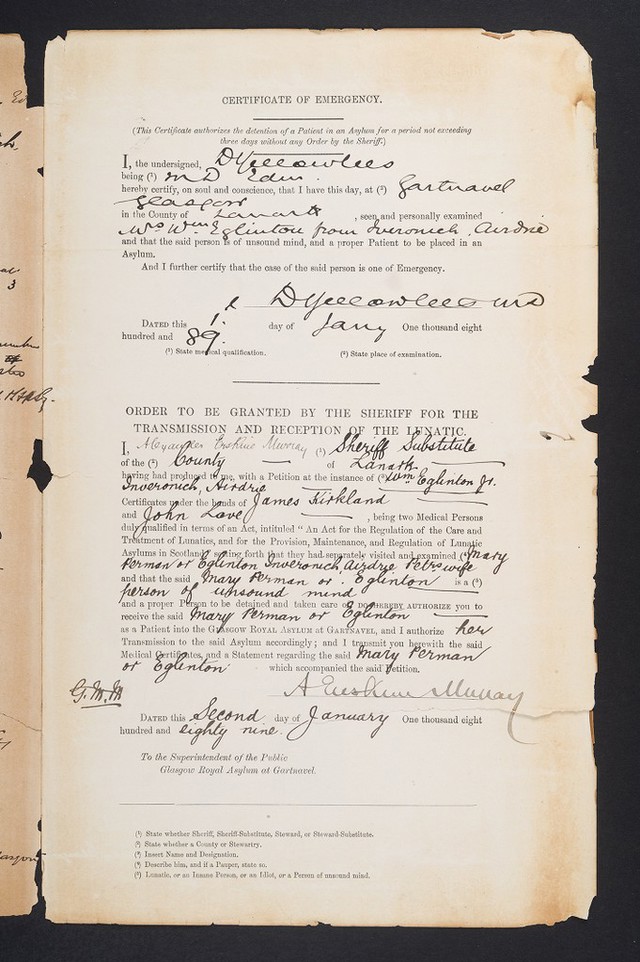 CERTIFICATE OF EMERGENCY.
(This Certificate authorizes the detention of a Patient in an Asylum for a period not exceeding
three days without any Order by the Sheriff.)
I, the undersigned, D Yellowlees
being (¹) M D Edin.
hereby certify, on soul and conscience, that I have this day, at (²) Gartnavel
Glasgow
in the County of Lanark , seen and personally examined
Mrs Wm Eglinton from Inveronich, Airdrie
and that the said person is of unsound mind, and a proper Patient to be placed in an
Asylum.
And I further certify that the case of the said person is one of Emergency.
D Yellowlees MD
DATED this 1st day of Jany One thousand eight
hundred and 89.
(¹) State medical qualification. (²) State place of examination.
ORDER TO BE GRANTED BY THE SHERIFF FOR THE
TRANSMISSION AND RECEPTION OF THE LUNATIC.
I, Alexander Erskine Murray (¹) Sheriff Substitute
of the (²) County of Lanark
having had produced to me, with a Petition at the instance of (³) Wm Eglinton Jr.
Inveronich, Airdrie
Certificates under the hands of James Kirkland
and John Love , being two Medical Persons
duly qualified in terms of an Act, intituled "An Act for the Regulation of the Care and
Treatment of Lunatics, and for the Provision, Maintenance, and Regulation of Lunatic
Asylums in Scotland," setting forth that they had separately visited and examined (⁴) Mary
Perman or Eglinton Inveronich, Airdrie Petrs wife
and that the said Mary Perman or Eglinton is a (⁵)
person of unsound mind
and a proper Person to be detained and taken care of, DO HEREBY AUTHORIZE you to
receive the said Mary Perman or Eglinton
as a Patient into the GLASGOW ROYAL ASYLUM AT GARTNAVEL, and I authorize her
Transmission to the said Asylum accordingly; and I transmit you herewith the said
Medical Certificates, and a Statement regarding the said Mary Perman
or Eglinton which accompanied the said Petition.
G.M.M
A Erskine Murray
DATED this Second day of January One thousand eight
hundred and eighty nine.
To the Superintendent of the Public
Glasgow Royal Asylum at Gartnavel.
(¹) State whether Sheriff, Sheriff-Substitute, Steward, or Steward-Substitute.
(²) State whether a County or Stewartry.
(³) Insert Name and Designation.
(⁴) Describe him, and if a Pauper, state so.
(⁵) Lunatic, or an Insane Person, or an Idiot, or a Person of unsound mind.